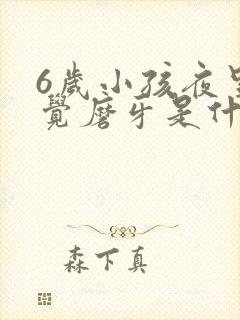 6歲小孩夜里
覺磨牙是什
森下真